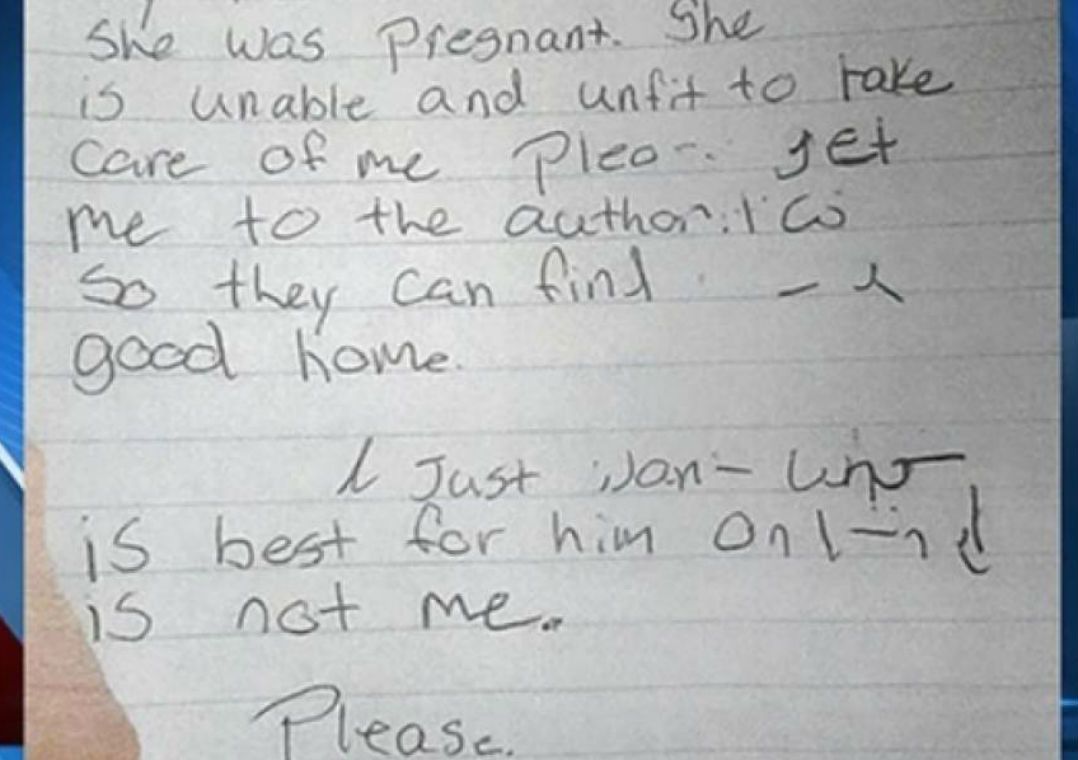 She was Pregnant. She
is unable and unfit to take
Care of me get
me to the
So they can find
good home.
I Just
is best for him
is not me.
Please.